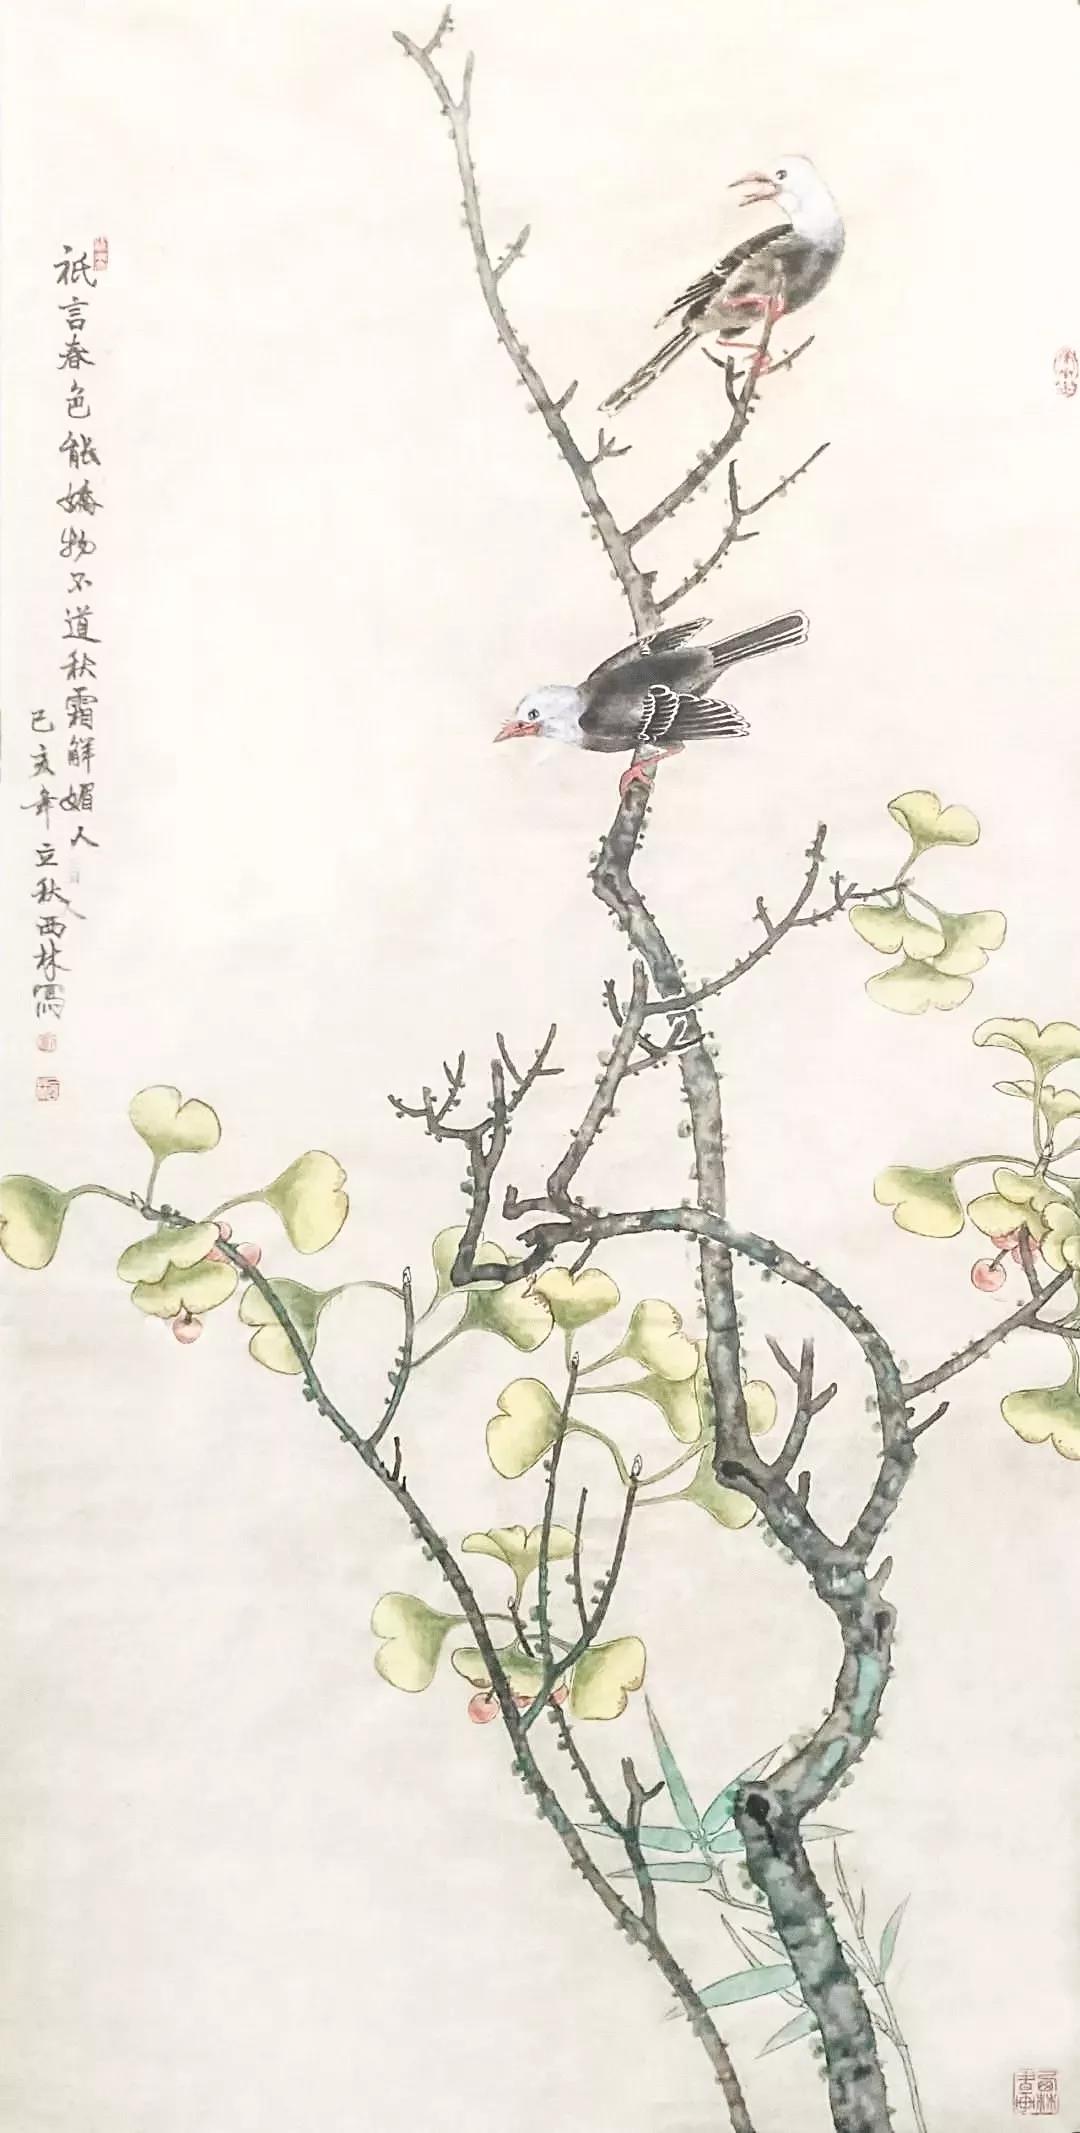 祇言春色能嬌物不道秋霜解媚人
己亥年立秋西林寫
西林
書畫